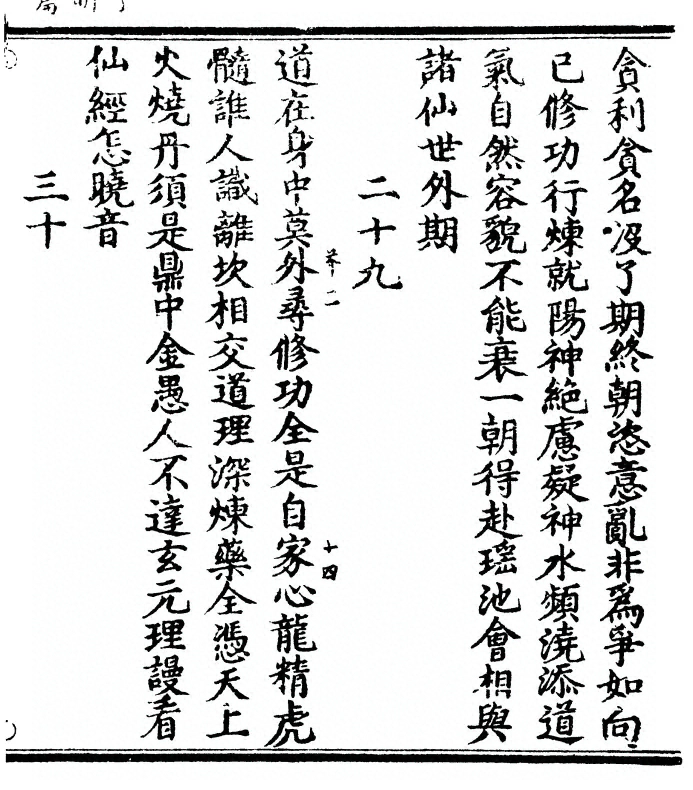 貪利貪名没了期終朝恣意亂非爲爭如向
已修功行煉就陽神絶慮凝神水頻澆添道
氣自然容貌不能衰一朝得赴瑶池會相與
諸仙世外期
二十九
道在身中莫外尋修功全是自家心龍精虎
十二
十四
髓誰人識離坎相交道理深煉藥全憑天上
火燒丹須是鼎中金愚人不達玄元理謾看
仙經怎曉音
三十